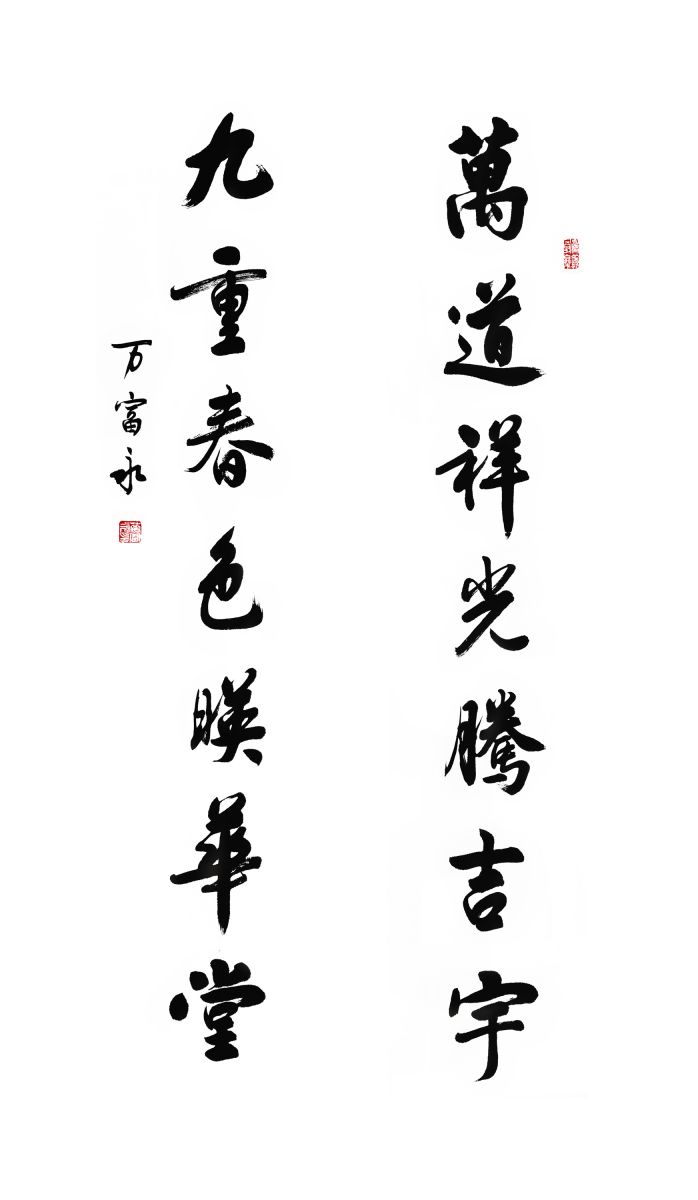 萬道祥光騰吉宇
九重春色暎華堂
万富永